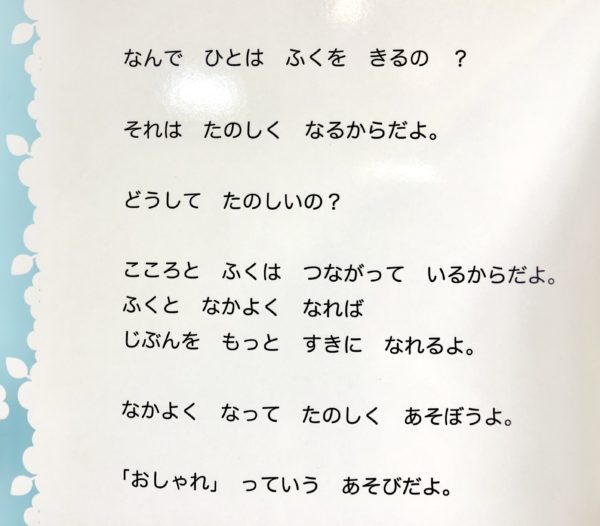 なんで　ひとは　ふくを　きるの　？
それは　たのしく　なるからだよ。
どうして　たのしいの？
こころと　ふくは　つながって　いるからだよ。
ふくと　なかよく　なれば
じぶんを　もっと　すきに　なれるよ。
なかよく　なって　たのしく　あそぼうよ。
「おしゃれ」　っていう　あそびだよ。